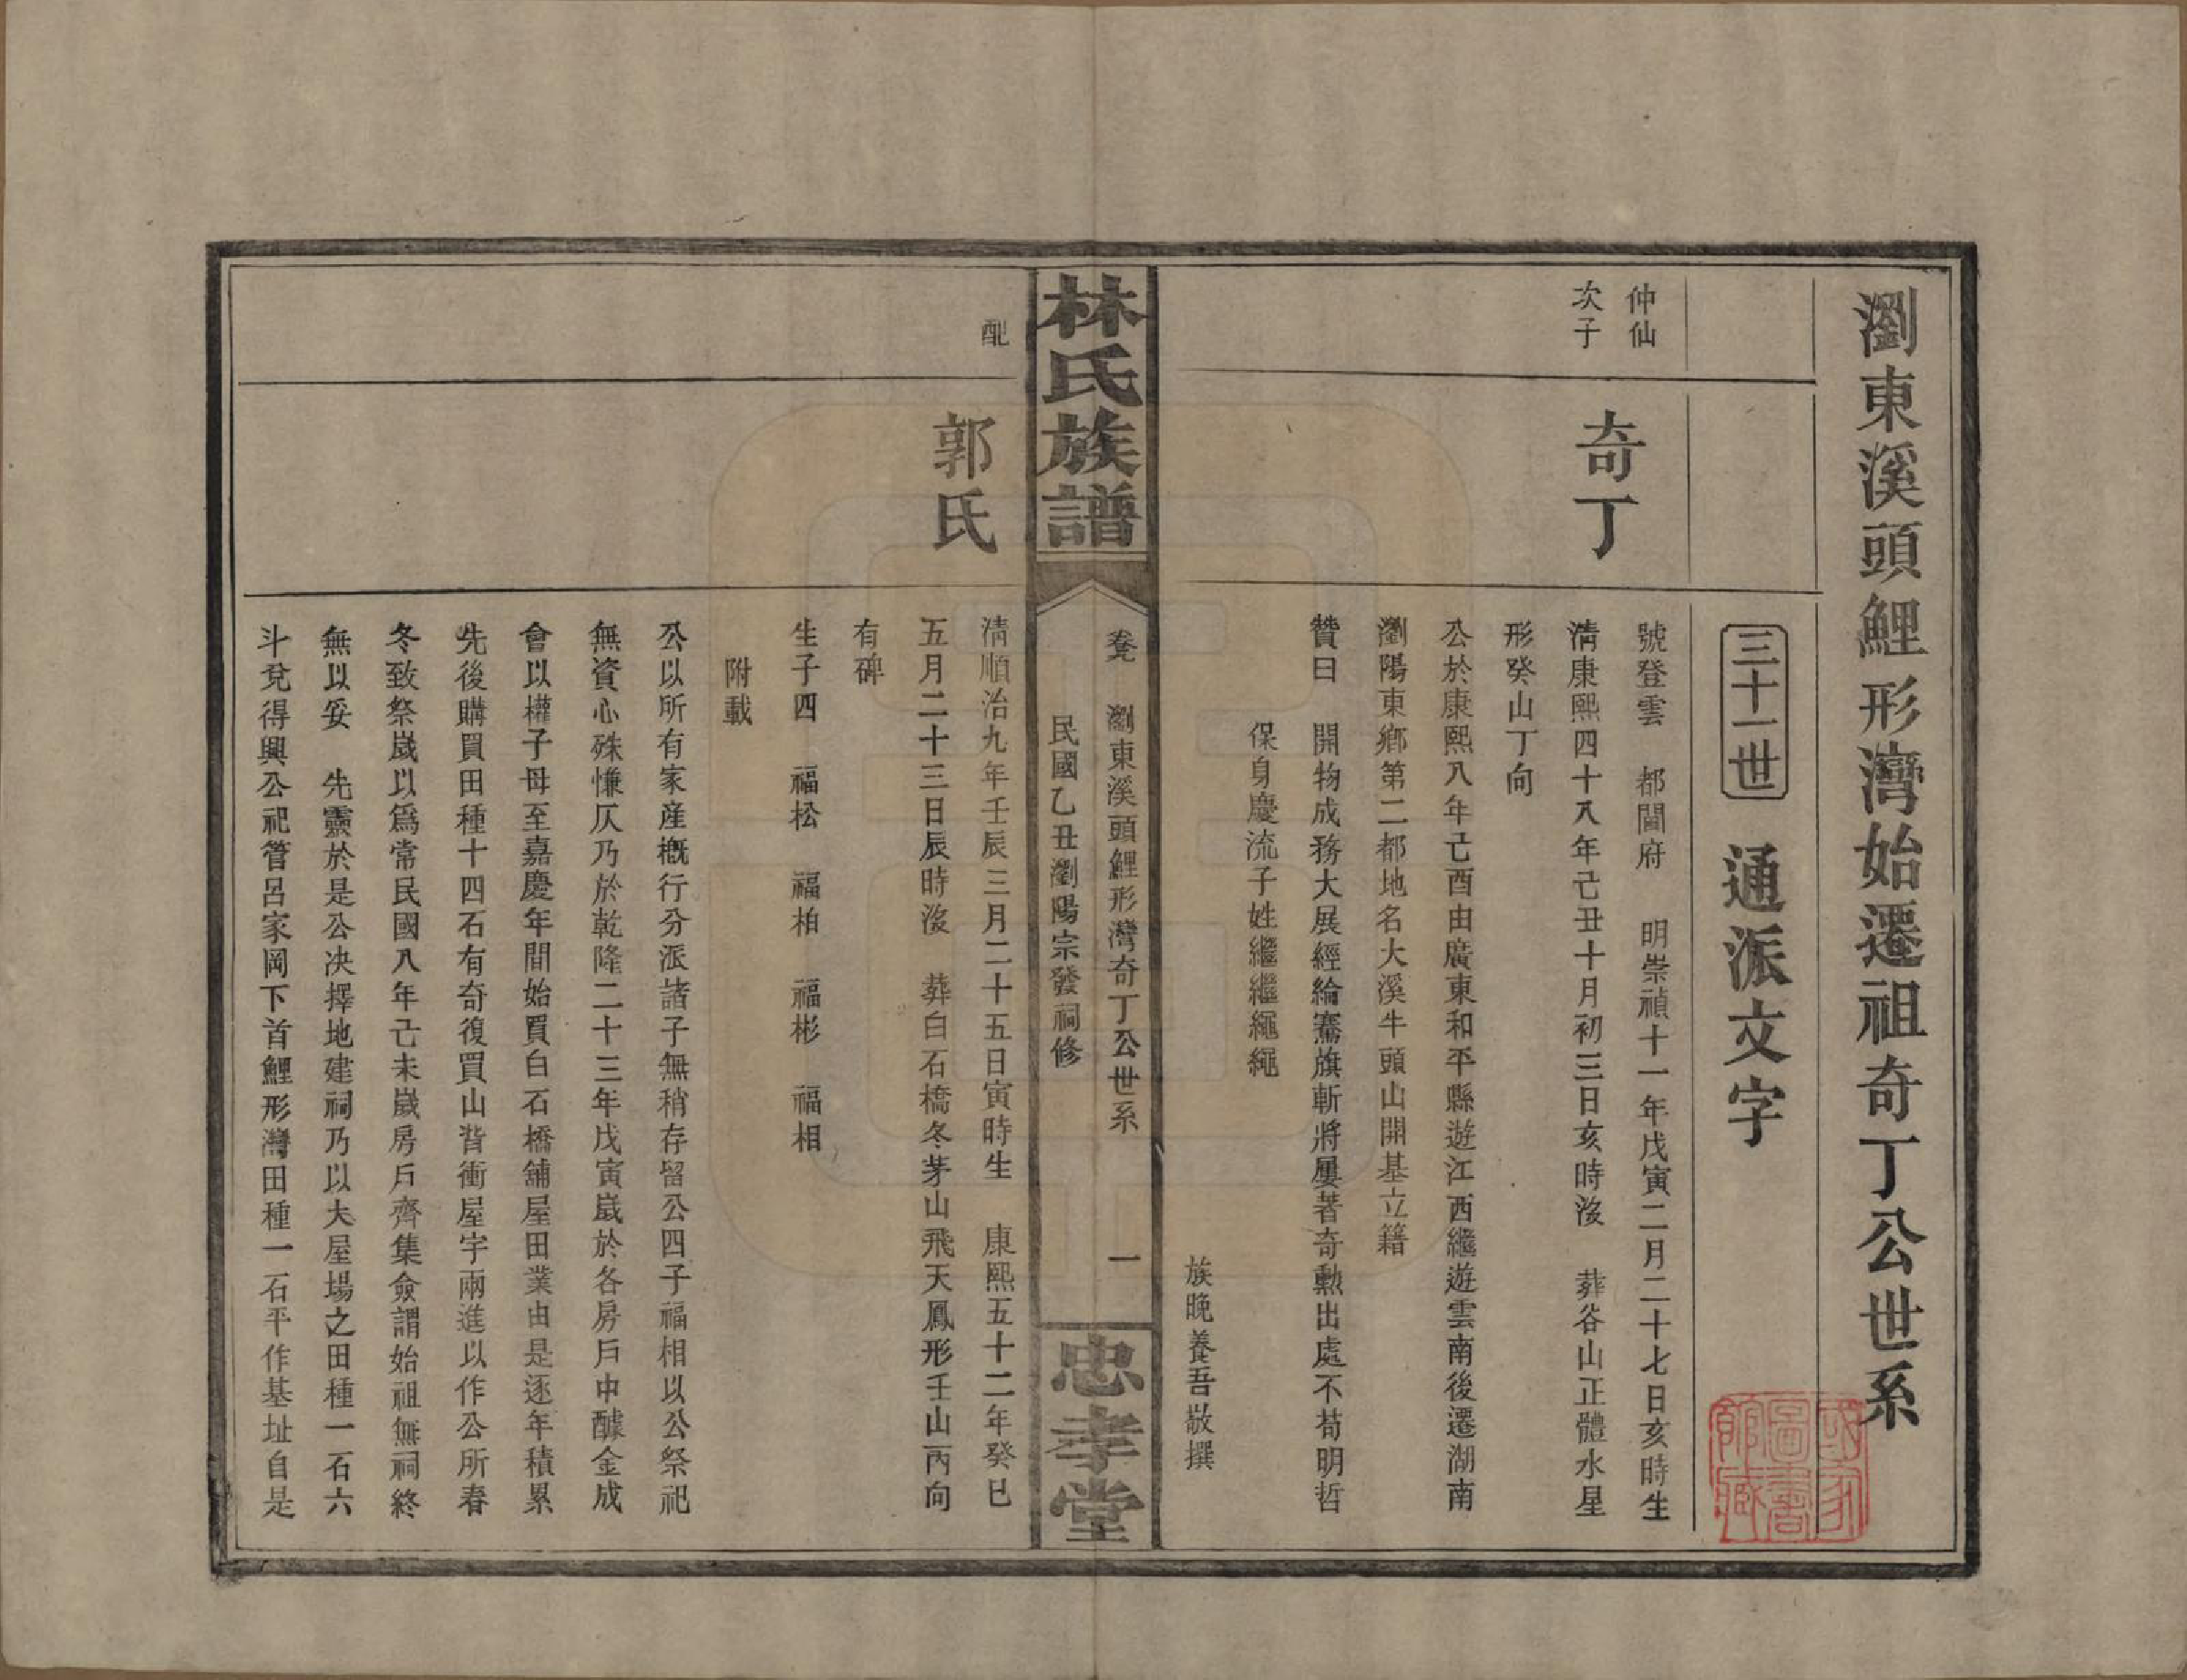 瀏東溪頭鯉形灣始遷祖奇丁公世系
三十一世 通派文字
仲仙
次子
奇丁
號登雲 都閫府 明崇禎十一年戊寅二月二十七日亥時生
清康熙四十八年己丑十月初三日亥時沒 葬谷山正體水星
形癸山丁向
公於康熙八年己酉由廣東和平縣遊江西繼遊雲南後遷湖南
瀏陽東鄉第二都地名大溪牛頭山開基立籍
贊曰 開物成務大展經綸搴旗斬將屢著奇勳出處不苟明哲
保身慶流子姓繼繼繩繩
族晚養吾敬撰
林氏族譜
瀏東溪頭鯉形灣奇丁公世系 一
民國乙丑瀏陽宗發祠修
忠孝堂
配
郭氏
清順治九年壬辰三月二十五日寅時生 康熙五十二年癸巳
五月二十三日辰時沒 葬白石橋冬茅山飛天鳳形壬山丙向
有碑
生子四 福松 福柏 福彬 福相
附載
公以所有家産概行分派諸子無稍存留公四子福相以公祭祀
無資心殊慊仄乃於乾隆二十三年戊寅歲於各房戶中醵金成
會以權子母至嘉慶年間始買白石橋舖屋田業由是逐年積累
先後購買田種十四石有奇復買山背衝屋宇兩進以作公所春
冬致祭歲以爲常民國八年己未歲房戶齊集僉謂始祖無祠終
無以妥 先靈於是公決擇地建祠乃以大屋場之田種一石六
斗兌得興公祀管呂家岡下首鯉形灣田種一石平作基址自是
國家圖書館藏